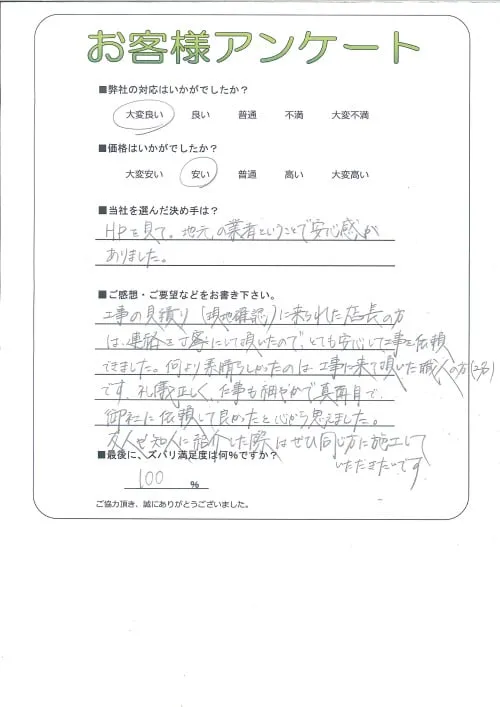 お客様アンケート
■弊社の対応はいかがでしたか？
大変良い 良い 普通 不満 大変不満
■価格はいかがでしたか？
大変安い 安い 普通 高い 大変高い
■当社を選んだ決め手は？
HPを見て。地元の業者ということで安心感が
ありました。
■ご感想・ご要望などをお書き下さい。
工事の見積り(現地確認)に来られた店長の方
は、連絡を丁寧にして頂いたので、とても安心して工事を依頼
できました。何より素晴らしかったのは、工事に来て頂いた職人の方(2名)
です。礼儀正しく、仕事も細やかで真面目で、
御社に依頼して良かったと心から思えました。
友人や知人に紹介した際はぜひ同じ方に施工して
いただきたいです
■最後に、ズバリ満足度は何％ですか？
100 ％
ご協力頂き、誠にありがとうございました。